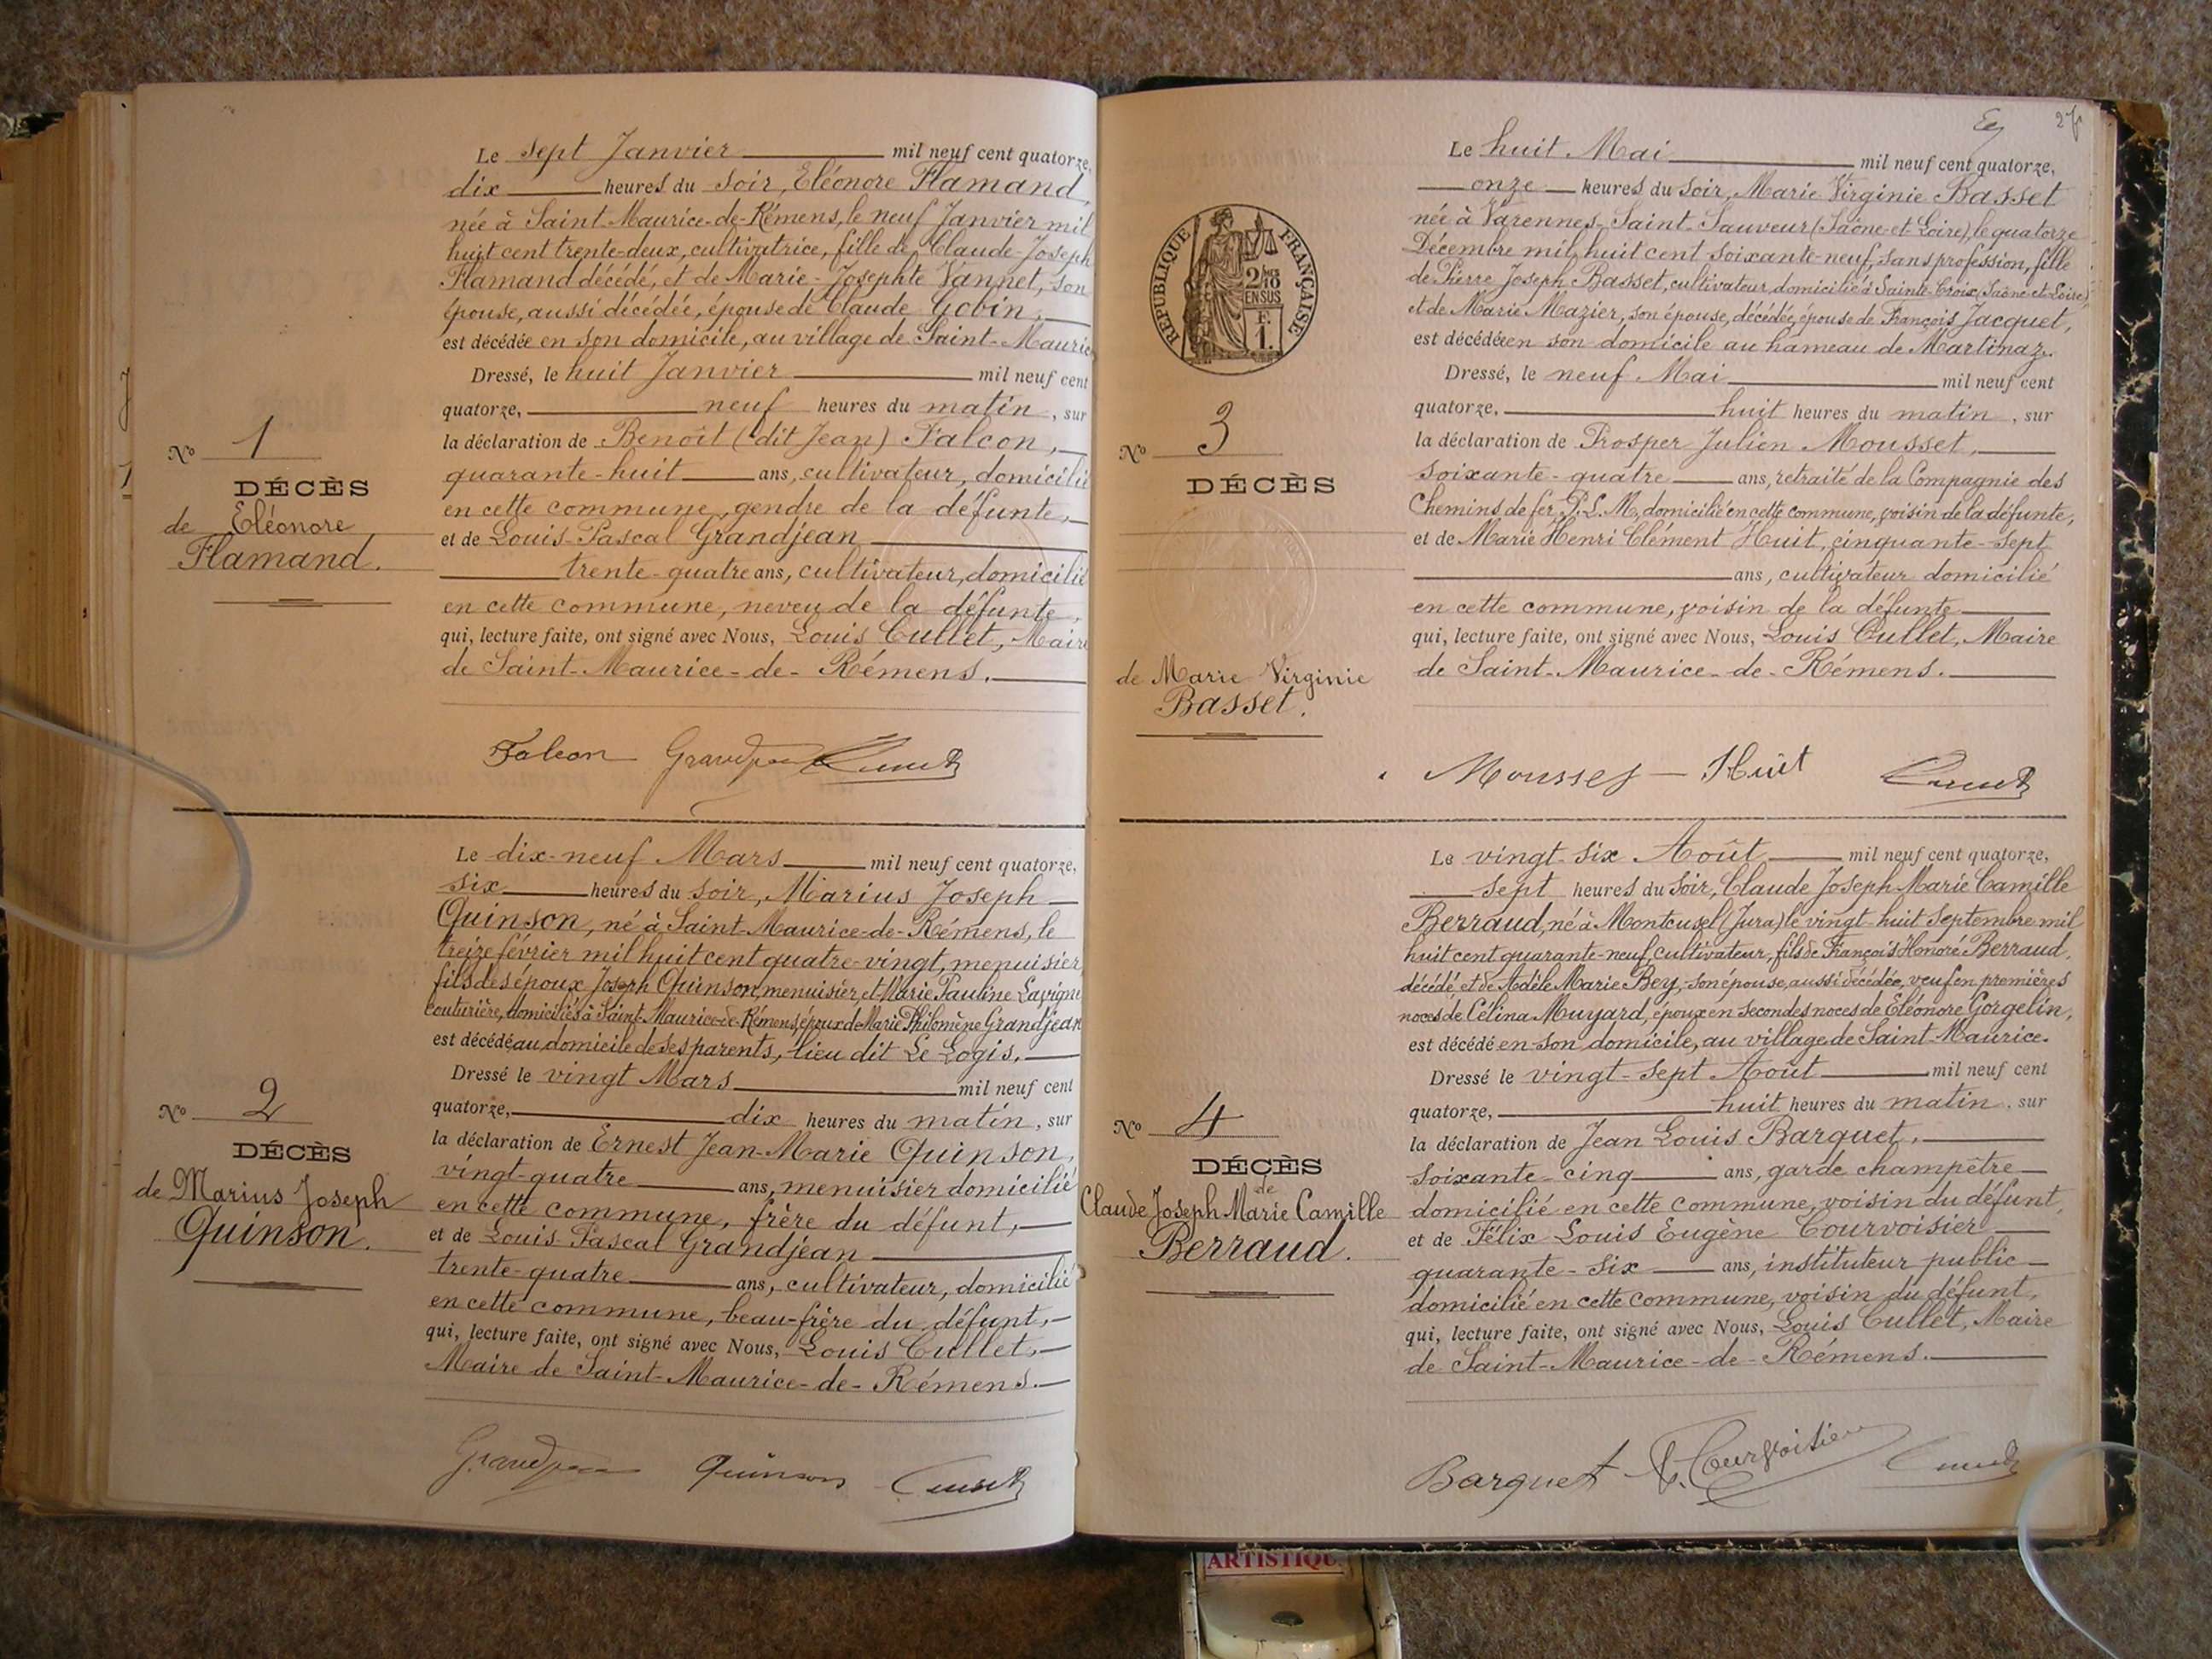 Le sept Janvier mil neuf cent quatorze,
dix heures du soir, Eléonore Flamand,
née à Saint-Maurice-de-Rémens, le neuf Janvier mil
huit cent trente-deux, cultivatrice, fille de Claude-Joseph
Flamand décédé, et de Marie-Josephte Vannet, son
épouse, aussi décédée, épouse de Claude Gobin,
est décédée en son domicile, au village de Saint-Maurice
Dressé, le huit Janvier mil neuf cent
quatorze, neuf heures du matin, sur
la déclaration de Benoît (dit Jean) Falcon,
quarante-huit ans, cultivateur, domicilié
en cette commune, gendre de la défunte,
et de Louis-Pascal Grandjean
trente-quatre ans, cultivateur, domicilié
en cette commune, neveu de la défunte,
qui, lecture faite, ont signé avec Nous, Louis Cullet, Maire
de Saint-Maurice-de-Rémens.
No 1
DÉCÈS
de Eléonore
Flamand.
Falcon Grandjean Cullet
Le dix-neuf Mars mil neuf cent quatorze,
six heures du soir, Marius Joseph
Quinson, né à Saint-Maurice-de-Rémens, le
treize février mil huit cent quatre-vingt, menuisier,
fils des époux Joseph Quinson, menuisier, et Marie Pauline Lavigne
couturière, domiciliés à Saint-Maurice-de-Rémens, époux de Marie Philomène Grandjean
est décédé au domicile de ses parents, lieu dit Le Logis.
Dressé le vingt Mars mil neuf cent
quatorze, dix heures du matin, sur
la déclaration de Ernest Jean-Marie Quinson,
vingt-quatre ans, menuisier domicilié
en cette commune, frère du défunt,
et de Louis Pascal Grandjean
trente-quatre ans, cultivateur, domicilié
en cette commune, beau-frère du défunt,
qui, lecture faite, ont signé avec Nous, Louis Cullet,
Maire de Saint-Maurice-de-Rémens.
No 2
DÉCÈS
de Marius Joseph
Quinson.
Grandjean Quinson Cullet
Le huit Mai mil neuf cent quatorze,
onze heures du soir, Marie Virginie Basset
née à Varennes-Saint-Sauveur (Saône-et-Loire), le quatorze
Décembre mil huit cent soixante-neuf, sans profession, fille
de Pierre Joseph Basset, cultivateur, domicilié à Sainte-Croix (Saône-et-Loire)
et de Marie Mazier, son épouse, décédée, épouse de François Jacquet,
est décédée en son domicile au hameau de Martinaz.
Dressé, le neuf Mai mil neuf cent
quatorze, huit heures du matin, sur
la déclaration de Prosper Julien Mousset,
soixante-quatre ans, retraité de la Compagnie des
Chemins de fer P.L.M, domicilié en cette commune, voisin de la défunte,
et de Marie Henri Clément Huit, cinquante-sept
ans, cultivateur domicilié
en cette commune, voisin de la défunte
qui, lecture faite, ont signé avec Nous, Louis Cullet, Maire
de Saint-Maurice-de-Rémens.
RÉPUBLIQUE FRANÇAISE
2/10
EN SUS
F.
1.
No 3
DÉCÈS
de Marie Virginie
Basset.
Mousset Huit Cullet
Le vingt-six Août mil neuf cent quatorze,
sept heures du soir, Claude Joseph Marie Camille
Berraud, né à Montcusel (Jura) le vingt-huit Septembre mil
huit cent quarante-neuf, cultivateur, fils de François Honoré Berraud,
décédé et de Adèle Marie Bey, son épouse, aussi décédée, veuf en premières
noces de Célina Muyard, époux en secondes noces de Eléonore Gorgelin,
est décédé en son domicile, au village de Saint-Maurice.
Dressé le vingt-sept Août mil neuf cent
quatorze, huit heures du matin, sur
la déclaration de Jean Louis Barquet,
soixante-cinq ans, garde champêtre
domicilié en cette commune, voisin du défunt,
et de Félix Louis Eugène Courvoisier
quarante-six ans, instituteur public
domicilié en cette commune, voisin du défunt,
qui, lecture faite, ont signé avec Nous, Louis Cullet, Maire
de Saint-Maurice-de-Rémens.
No 4
DÉCÈS
de
Claude Joseph Marie Camille
Berraud.
Barquet F. Courvoisier Cullet
ARTISTIQU